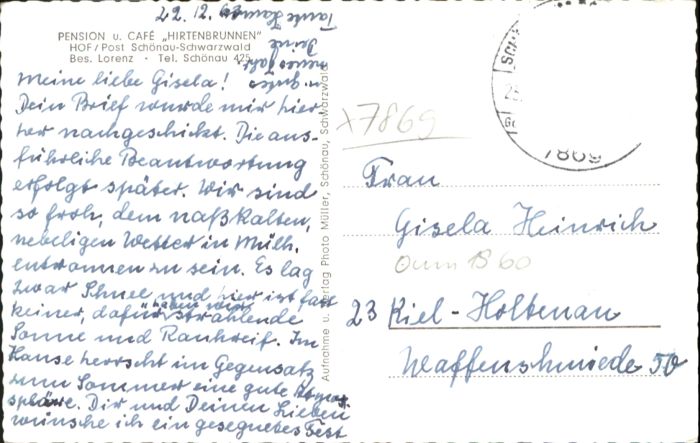 22.12.
PENSION u. CAFÉ „HIRTENBRUNNEN"
HOF/Post Schönau-Schwarzwald
Bes. Lorenz · Tel. Schönau 425
Meine liebe Gisela!
Dein Brief wurde mir hier
her nachgeschickt. Die aus-
führliche Beantwortung
erfolgt später. Wir sind
so froh, dem naßkalten,
nebeligen Wetter in Mülh.
entronnen zu sein. Es lag
zwar Schnee und hier ist fast
keiner, dafür haben wir strahlende
Sonne und Rauhreif. Im
Hause herrscht im Gegensatz
zum Sommer eine gute Atmos-
sphäre. Dir und Deinen Lieben
wünsche ich ein gesegnetes Fest
u. gutes
neues Jahr
Deine
Tante
Aufnahme u. Verlag Photo Müller, Schönau, Schwarzwald
x7869
7869
Frau
Gisela Heinrich
23 Kiel-Holtenau
Waffenschmiede 50